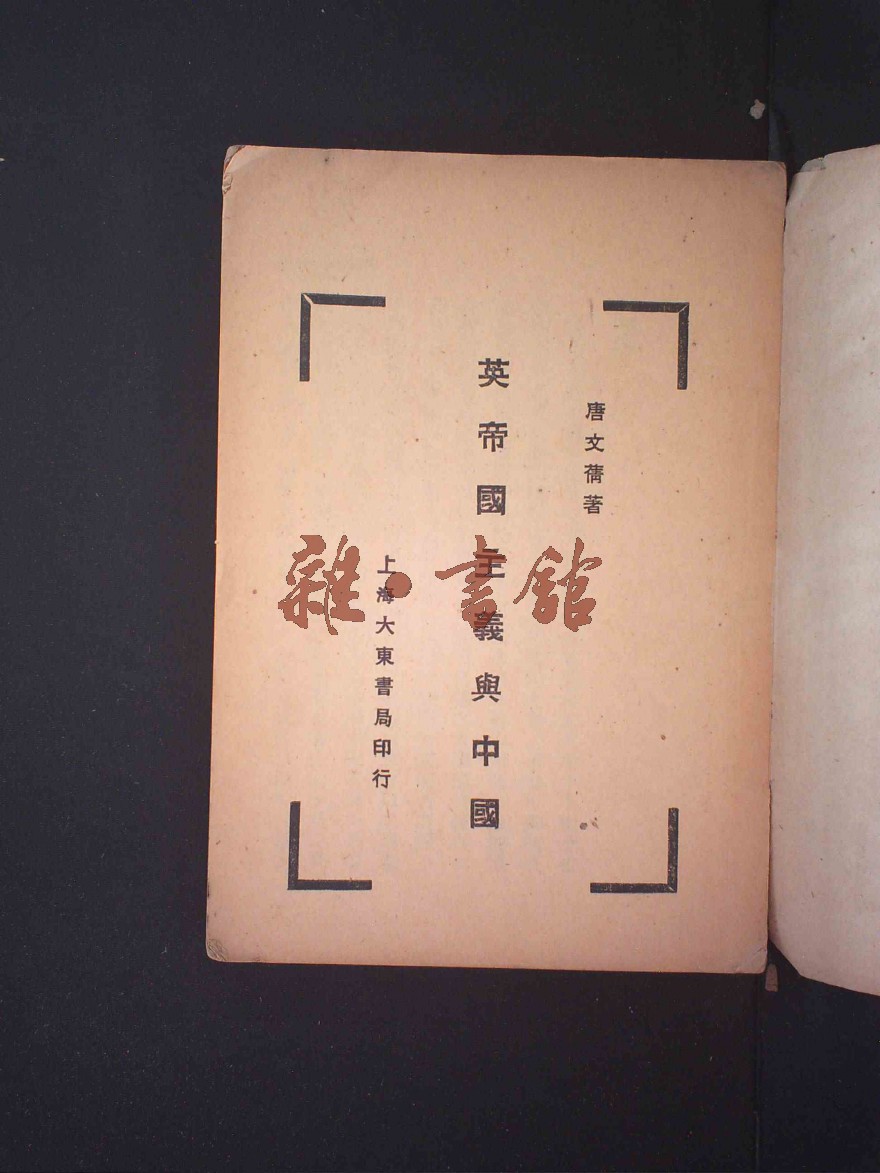 唐文蒨著
英帝國主義與中國
上海大東書局印行
雜·書館